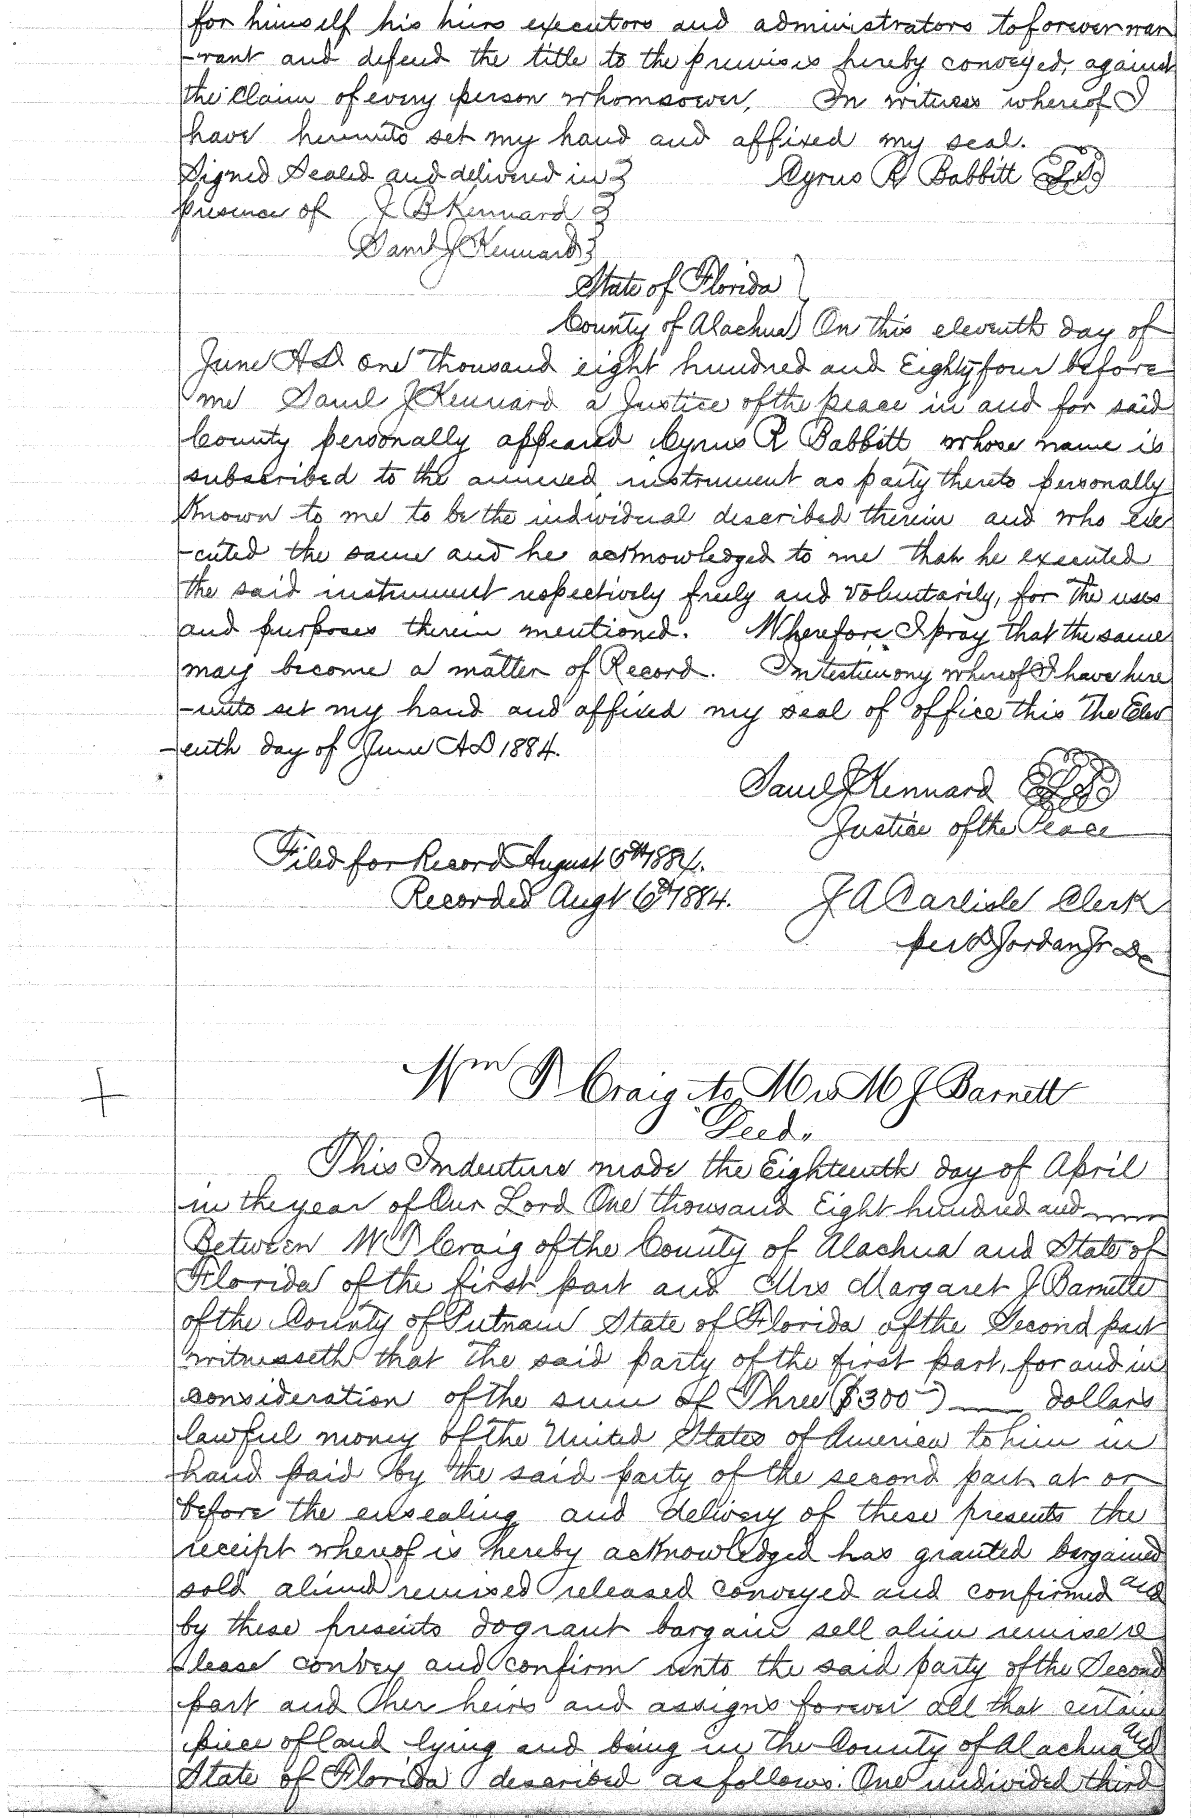 for himself his heirs executors and administrators to forever war
-rant and defend the title to the premises hereby conveyed, against
the Claim of every person whomsoever, In witness whereof I
have hereunto set my hand and affixed my seal.
Signed Sealed and delivered in } Cyrus R Babbitt (L.S.)
presence of J B Kennard }
Saml J Kennard }
State of Florida }
County of Alachua } On this eleventh day of
June A.D. one thousand eight hundred and Eighty four before
me Saml J Kennard a Justice of the peace in and for said
County personally appeared Cyrus R Babbitt whose name is
subscribed to the annexed instrument as party thereto personally
Known to me to be the individual described therein and who exe
-cuted the same and he acknowledged to me that he executed
the said instrument respectively freely and voluntarily, for the uses
and purposes therein mentioned. Wherefore I pray that the same
may become a matter of Record. In testimony whereof I have here
-unto set my hand and affixed my seal of office this The Elev
-enth day of June A D 1884.
Saml J Kennard (L.S.)
Justice of the Peace
Filed for Record August 6th 1884.
Recorded Augt 6th 1884. J A Carlisle Clerk
per Jordan Jr D c
Wm I Craig to Mrs M J Barnett
"Deed"
This Indenture made the Eighteenth day of April
in the year of Our Lord One thousand Eight hundred and
Between W I Craig of the County of Alachua and State of
Florida of the first part and Mrs Margaret J Barnette
of the County of Putnam State of Florida of the Second part
witnesseth that the said party of the first part, for and in
consideration of the sum of Three ($300-) dollars
lawful money of the United States of America to him in
hand paid by the said party of the second part at or
before the ensealing and delivery of these presents the
receipt whereof is hereby acknowledged has granted bargained
sold aliened remised released conveyed and confirmed and
by these presents do grant bargain sell alien remise re
-lease convey and confirm unto the said party of the Second
part and her heirs and assigns forever all that certain
piece of land lying and being in the County of Alachua and
State of Florida described as follows: One undivided third